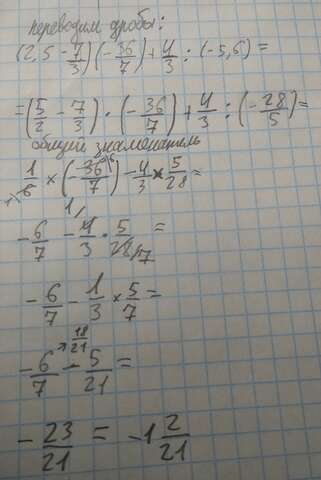 переводим дробы:
(2,5 - 7/3)(-36/7) + 4/3 : (-5,6) =
= (5/2 - 7/3) · (-36/7) + 4/3 : (-28/5) =
общий знаменатель
1/6 × (-36/7) - 4/3 × 5/28 =
-6/7 - 4/3 · 5/28 =
-6/7 - 1/3 × 5/7 =
-6/7 → 18/21 - 5/21 =
-23/21 = -1 2/21